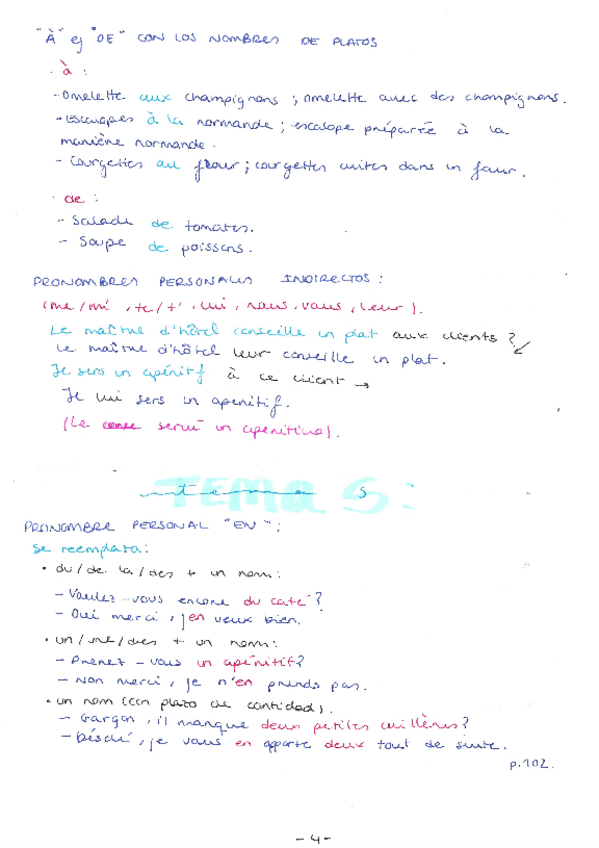 "À" ej "DE" CON LOS NOMBRES DE PLATOS
· à :
- Omelette aux champignons ; omelette avec des champignons.
- Escalopes à la normande ; escalope préparée à la
manière normande.
- Courgettes au four ; courgettes cuites dans un four.
· de :
- Salade de tomates.
- Soupe de poissons.
PRONOMBRES PERSONALES INDIRECTOS :
(me/m', te/t', lui, nous, vous, leur).
Le maître d'hôtel conseille un plat aux clients ?
Le maître d'hôtel leur conseille un plat.
Je sers un apéritif à ce client →
Je lui sers un apéritif.
(Le serví un aperitivo).
TEMA 5:
tema 5
PRONOMBRE PERSONAL "EN":
se reemplaza:
• du/de la/des + un nom:
- Voulez-vous encore du café ?
- Oui merci, j'en veux bien.
• un/une/des + un nom:
- Prenez-vous un apéritif?
- Non merci, je n'en prends pas.
• un nom (con plazo de cantidad).
- Garçon, il manque deux petites cuillères?
- Désolé, je vous en apporte deux tout de suite.
p.102.
- 4 -